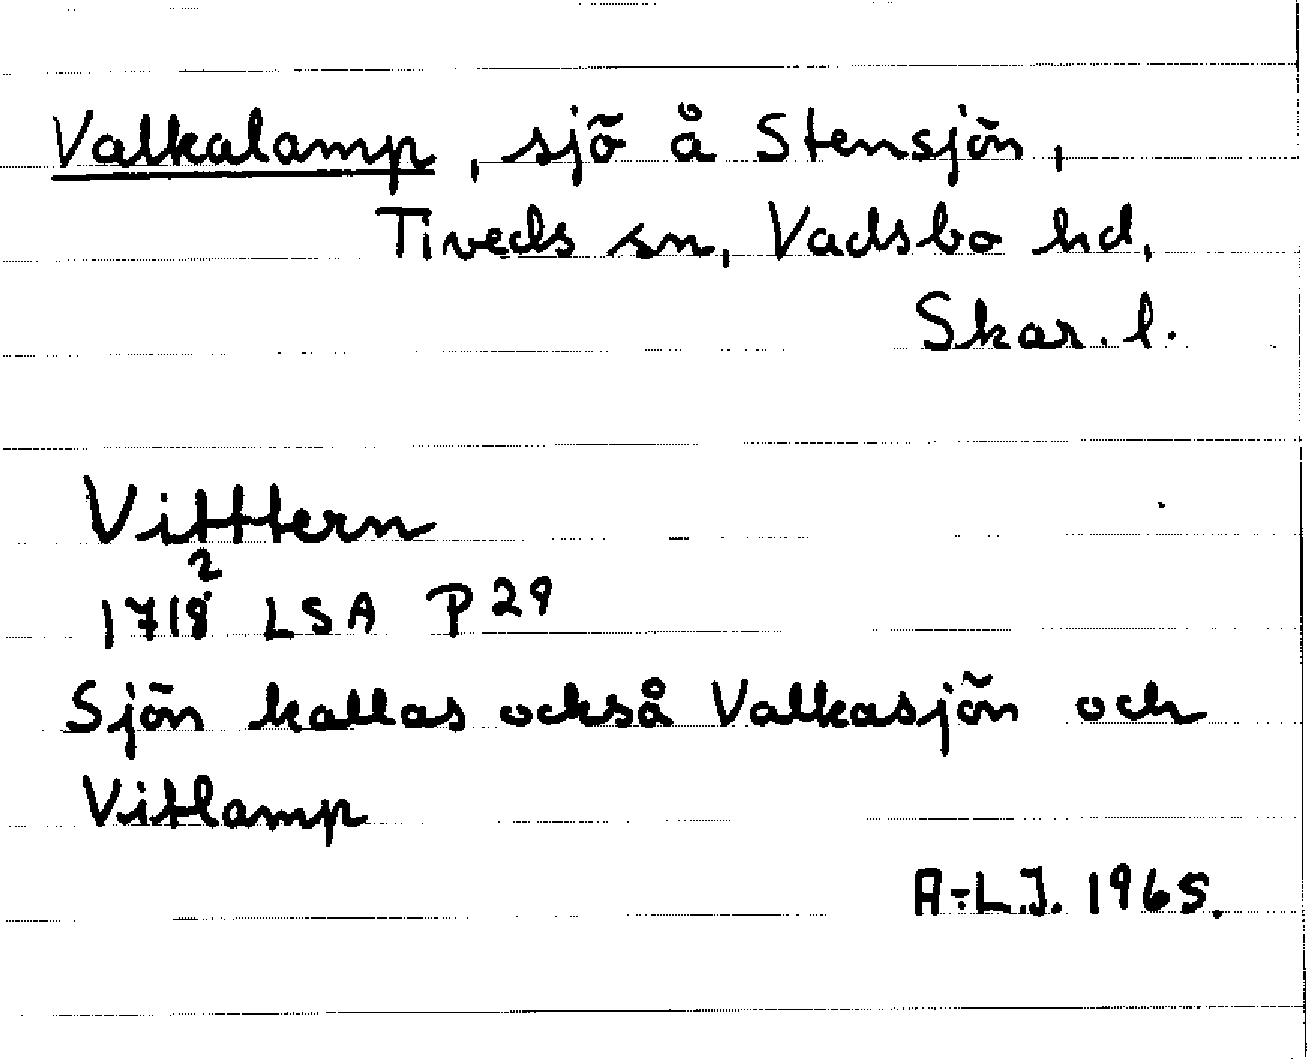 Valkalamp, sjö å Stensjön,
Tiveds sn, Vadsbo hd,
Skar. l.
Vitttern
2
1718 LSA P 29
Sjön kallas också Valkasjön och
Vitlamp
A-L.J. 1965.